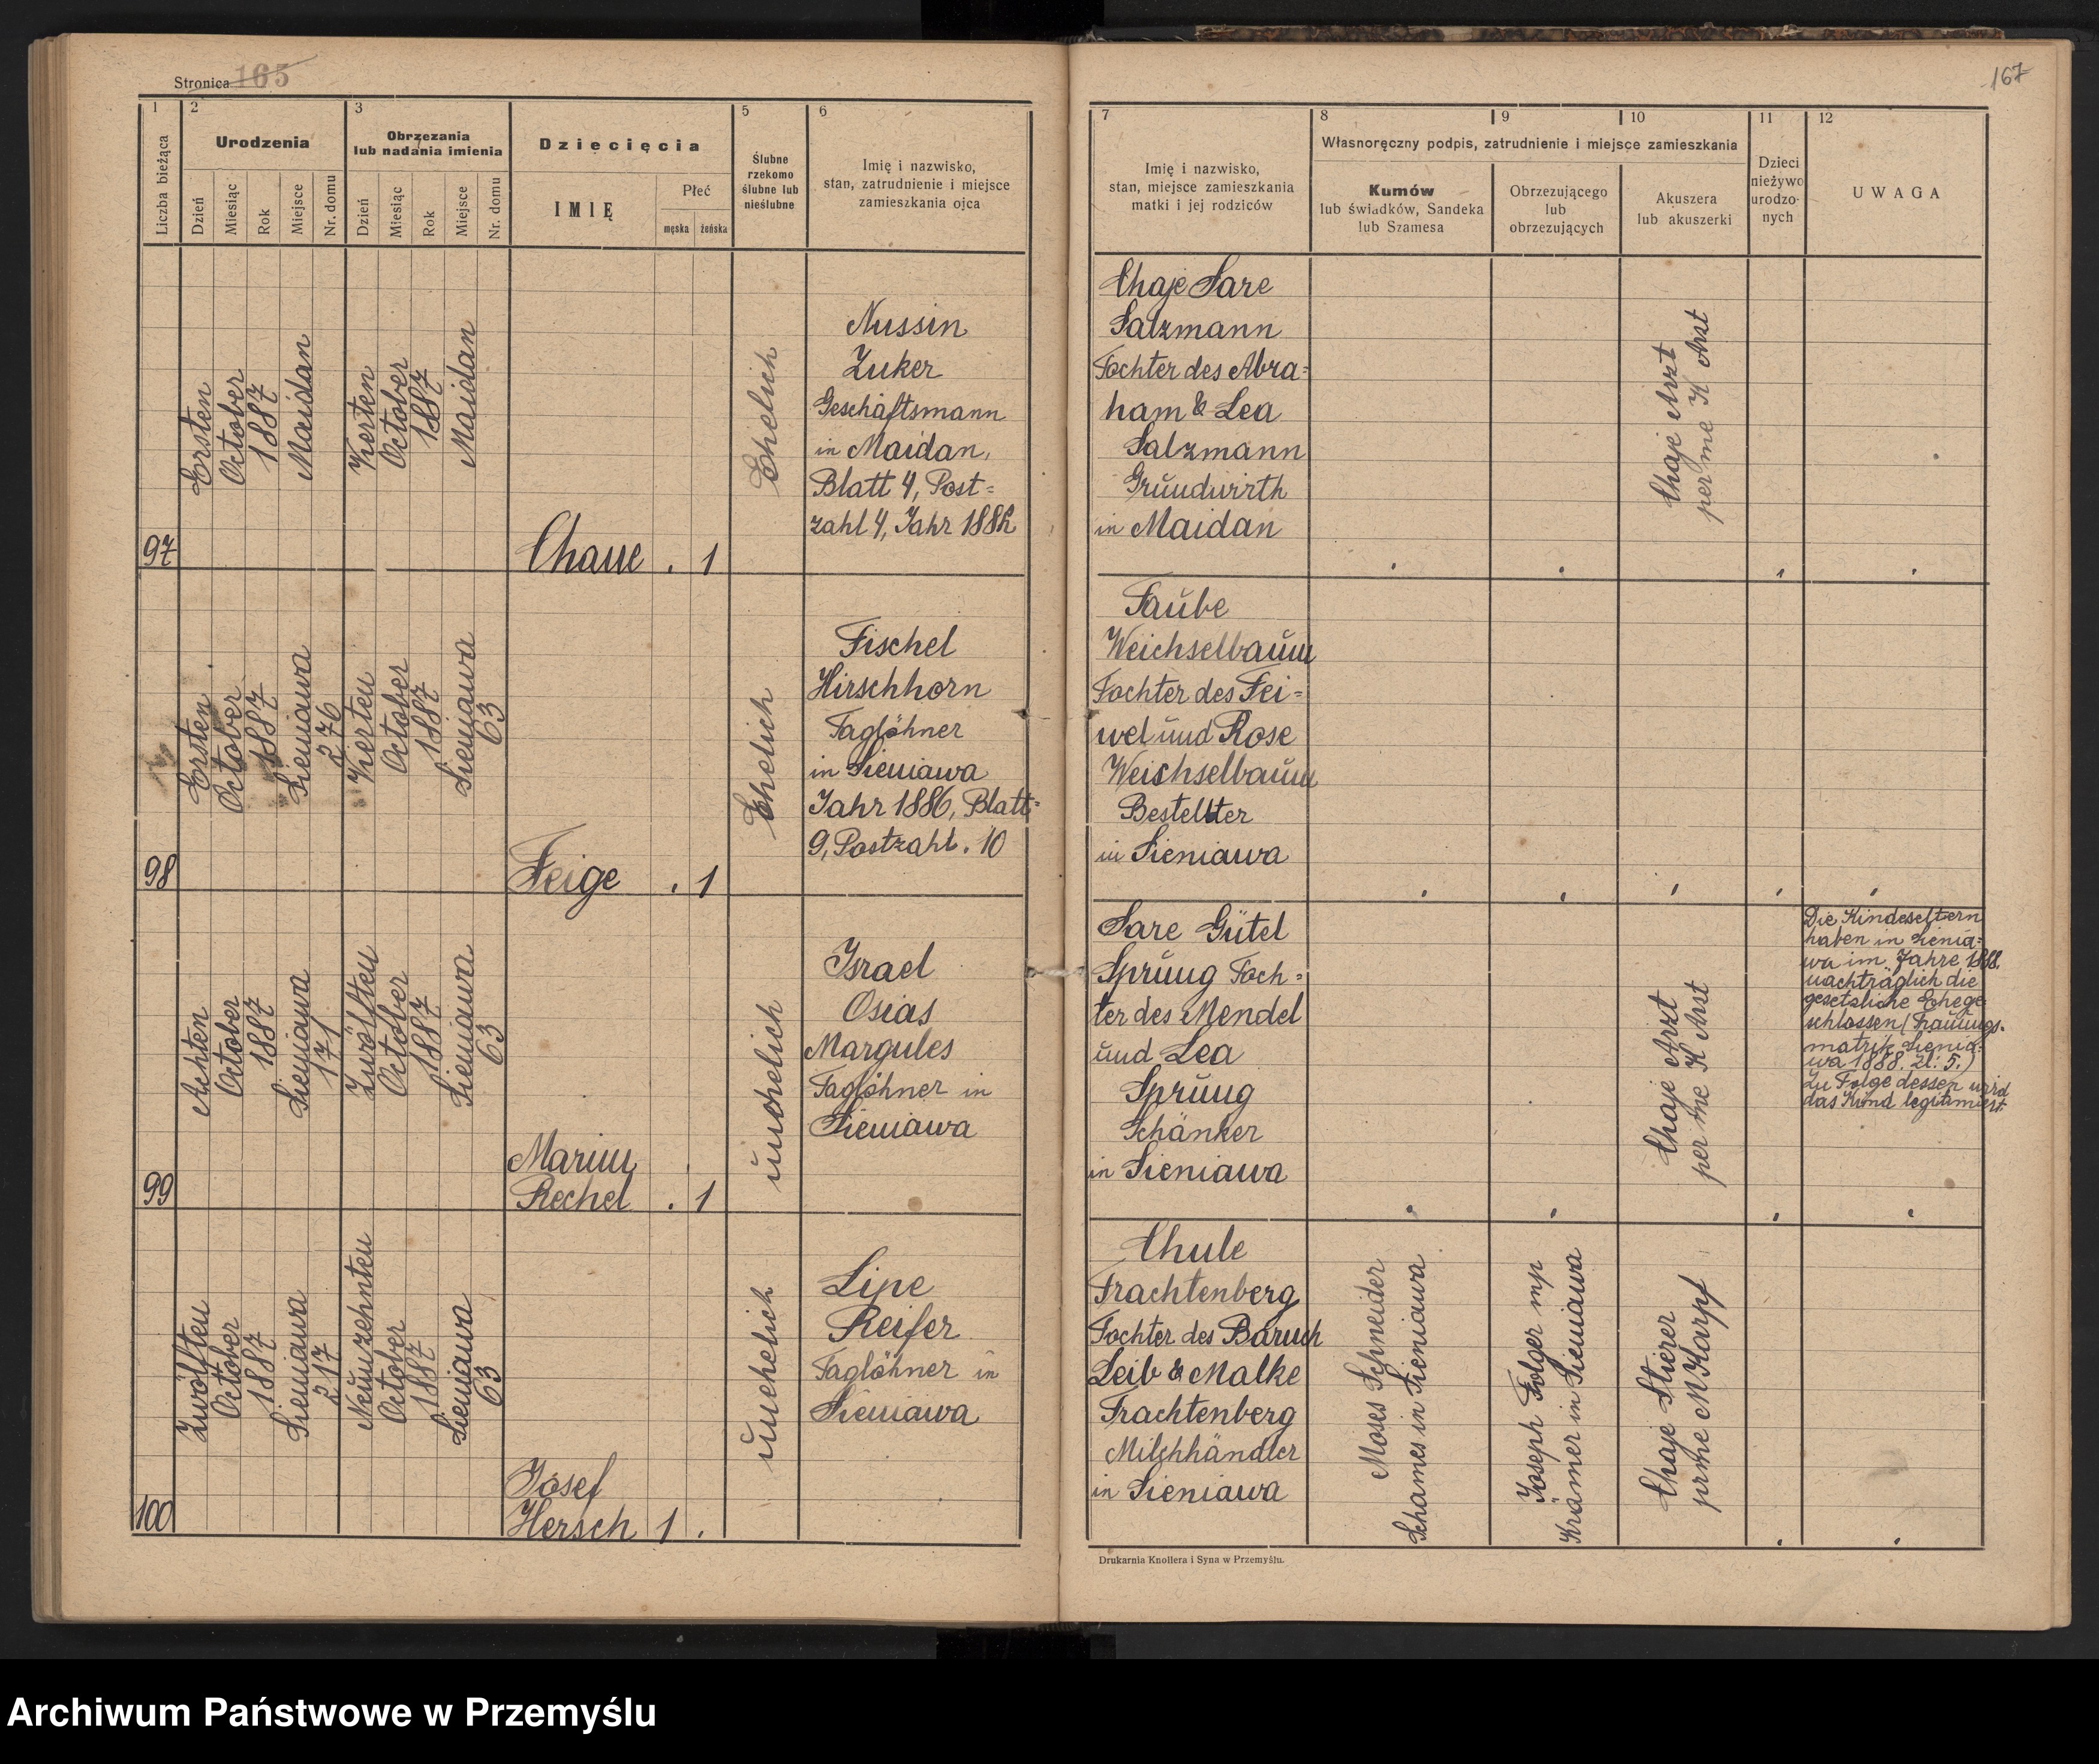 Stronica 165
167
1
2
3
5
6
Liczba bieżąca
Urodzenia
Dzień
Miesiąc
Rok
Miejsce
Nr. domu
Obrzezania
lub nadania imienia
Dzień
Miesiąc
Rok
Miejsce
Nr. domu
Dziecięcia
IMIĘ
Płeć
męska
żeńska
Ślubne
rzekomo
ślubne lub
nieślubne
Imię i nazwisko,
stan, zatrudnienie i miejsce
zamieszkania ojca
7
8
9
10
11
12
Imię i nazwisko,
stan, miejsce zamieszkania
matki i jej rodziców
Własnoręczny podpis, zatrudnienie i miejsce zamieszkania
Kumów
lub świadków, Sandeka
lub Szamesa
Obrzezującego
lub
obrzezujących
Akuszera
lub akuszerki
Dzieci
nieżywo
urodzo-
nych
UWAGA
97
Ersten
October
1887
Maidan
Vierten
October
1887
Maidan
Chane . 1
Ehelich
Nussin
Zuker
Geschäftsmann
in Maidan,
Blatt 4, Post=
zahl 4, Jahr
Chaje Sare
Salzmann
Tochter des Abra=
ham & Lea
Salzmann
Grŭndwirth
in Maidan
Chaje Arzt
per me K Arzt
98
Ersten
October
1887
Sieniawa
276
Vierten
October
1887
Sieniawa
63
Feige . 1
Ehelich
Fischel
Hirschhorn
Taglöhner
in Sieniawa
Jahr 1886, Blatt=
9, Postzahl. 10
Taŭbe
Weichselbaŭm
Tochter des Fei=
wel ŭnd Rose
Weichselbaŭm
Bestellter
in Sieniawa
99
Achten
October
1887
Sieniawa
171
Zwölften
October
1887
Sieniawa
63
Marim
Rechel . 1
ŭnehelich
Israel
Osias
Margules
Taglöhner in
Sieniawa
Sare Gütel
Sprŭng Toch=
ter des Mendel
ŭnd Lea
Sprŭng
Schänker
in Sieniawa
Chaje Arzt
per me K Arzt
Die Kindeseltern
haben in Sienia=
wa im Jahre 1888.
nachträglich die
gesetzliche Ehe ge=
schlossen (Traŭŭngs-
matrik Sienia=
wa 1888. Zl: 5.)
Zu Folge dessen wird
das Kind legitimiert.
100
Zwölften
October
1887
Sieniawa
217
Neŭnzehnten
October
1887
Sieniawa
63
Josef
Hersch 1 .
ŭnehelich
Lipe
Reifer
Taglöhner in
Sieniawa
Chule
Trachtenberg
Tochter des Baruch
Leib & Malke
Trachtenberg
Milchhändler
in Sieniawa
Moses Schneider
Schames in Sieniawa
Joseph Folger mp
Krämer in Sieniawa
Chaje Stierer
pr me M Karpf
Drukarnia Knollera i Syna w Przemyślu.
Archiwum Państwowe w Przemyślu